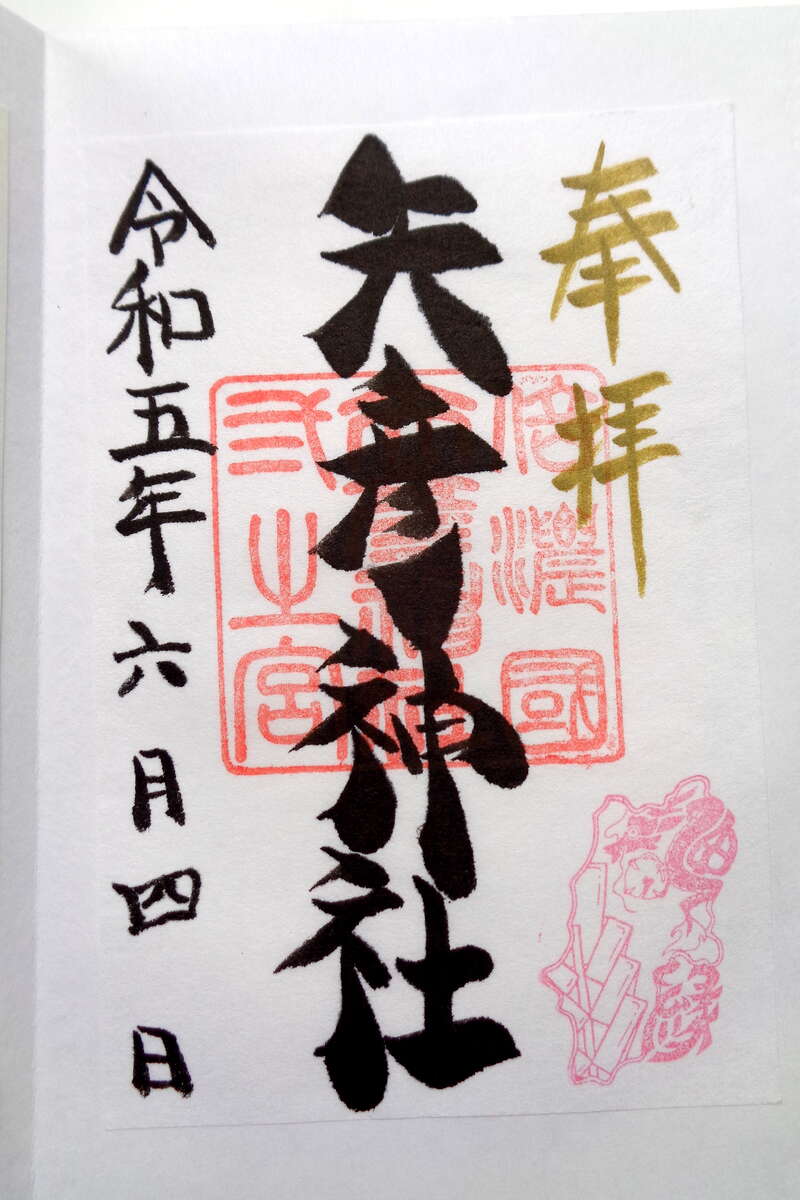 奉拝
矢彦神社
令和五年六月四日
信濃國
弐之宮